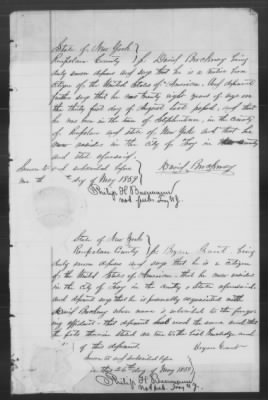 State of New York }
Rensselaer County } ss. David Brockway being
duly sworn deposes and says that he is a Native born
Citizen of the United States of America. And deponent
further says that he was twenty eight years of age on
the thirty first day of August last passed, and that
he was born in the town of Stephentown, in the County
of Rensselaer and State of New York and that he now
resides in the City of Troy in County
and State aforesaid.
Sworn to and subscribed before } David Brockway
me this day of May 1859
Philip H. Baermann
not. pub. Troy N.Y.
State of New York }
Rensselaer County } ss. Bryan Grant being
duly sworn deposes and says that he is a citizen
of the United States of America, that he now resides
in the City of Troy in the County & State aforesaid
and deponent says that he is personally acquainted with
David Brockway whose name is subscribed to the foregoing
affidavit. that deponent has read the same and that
the facts therein stated are true to the best knowledge and
of this deponent. Bryan Grant
Sworn to and subscribed before
me this day of May 1859
Philip H. Baermann
Not. Pub. Troy N.Y.